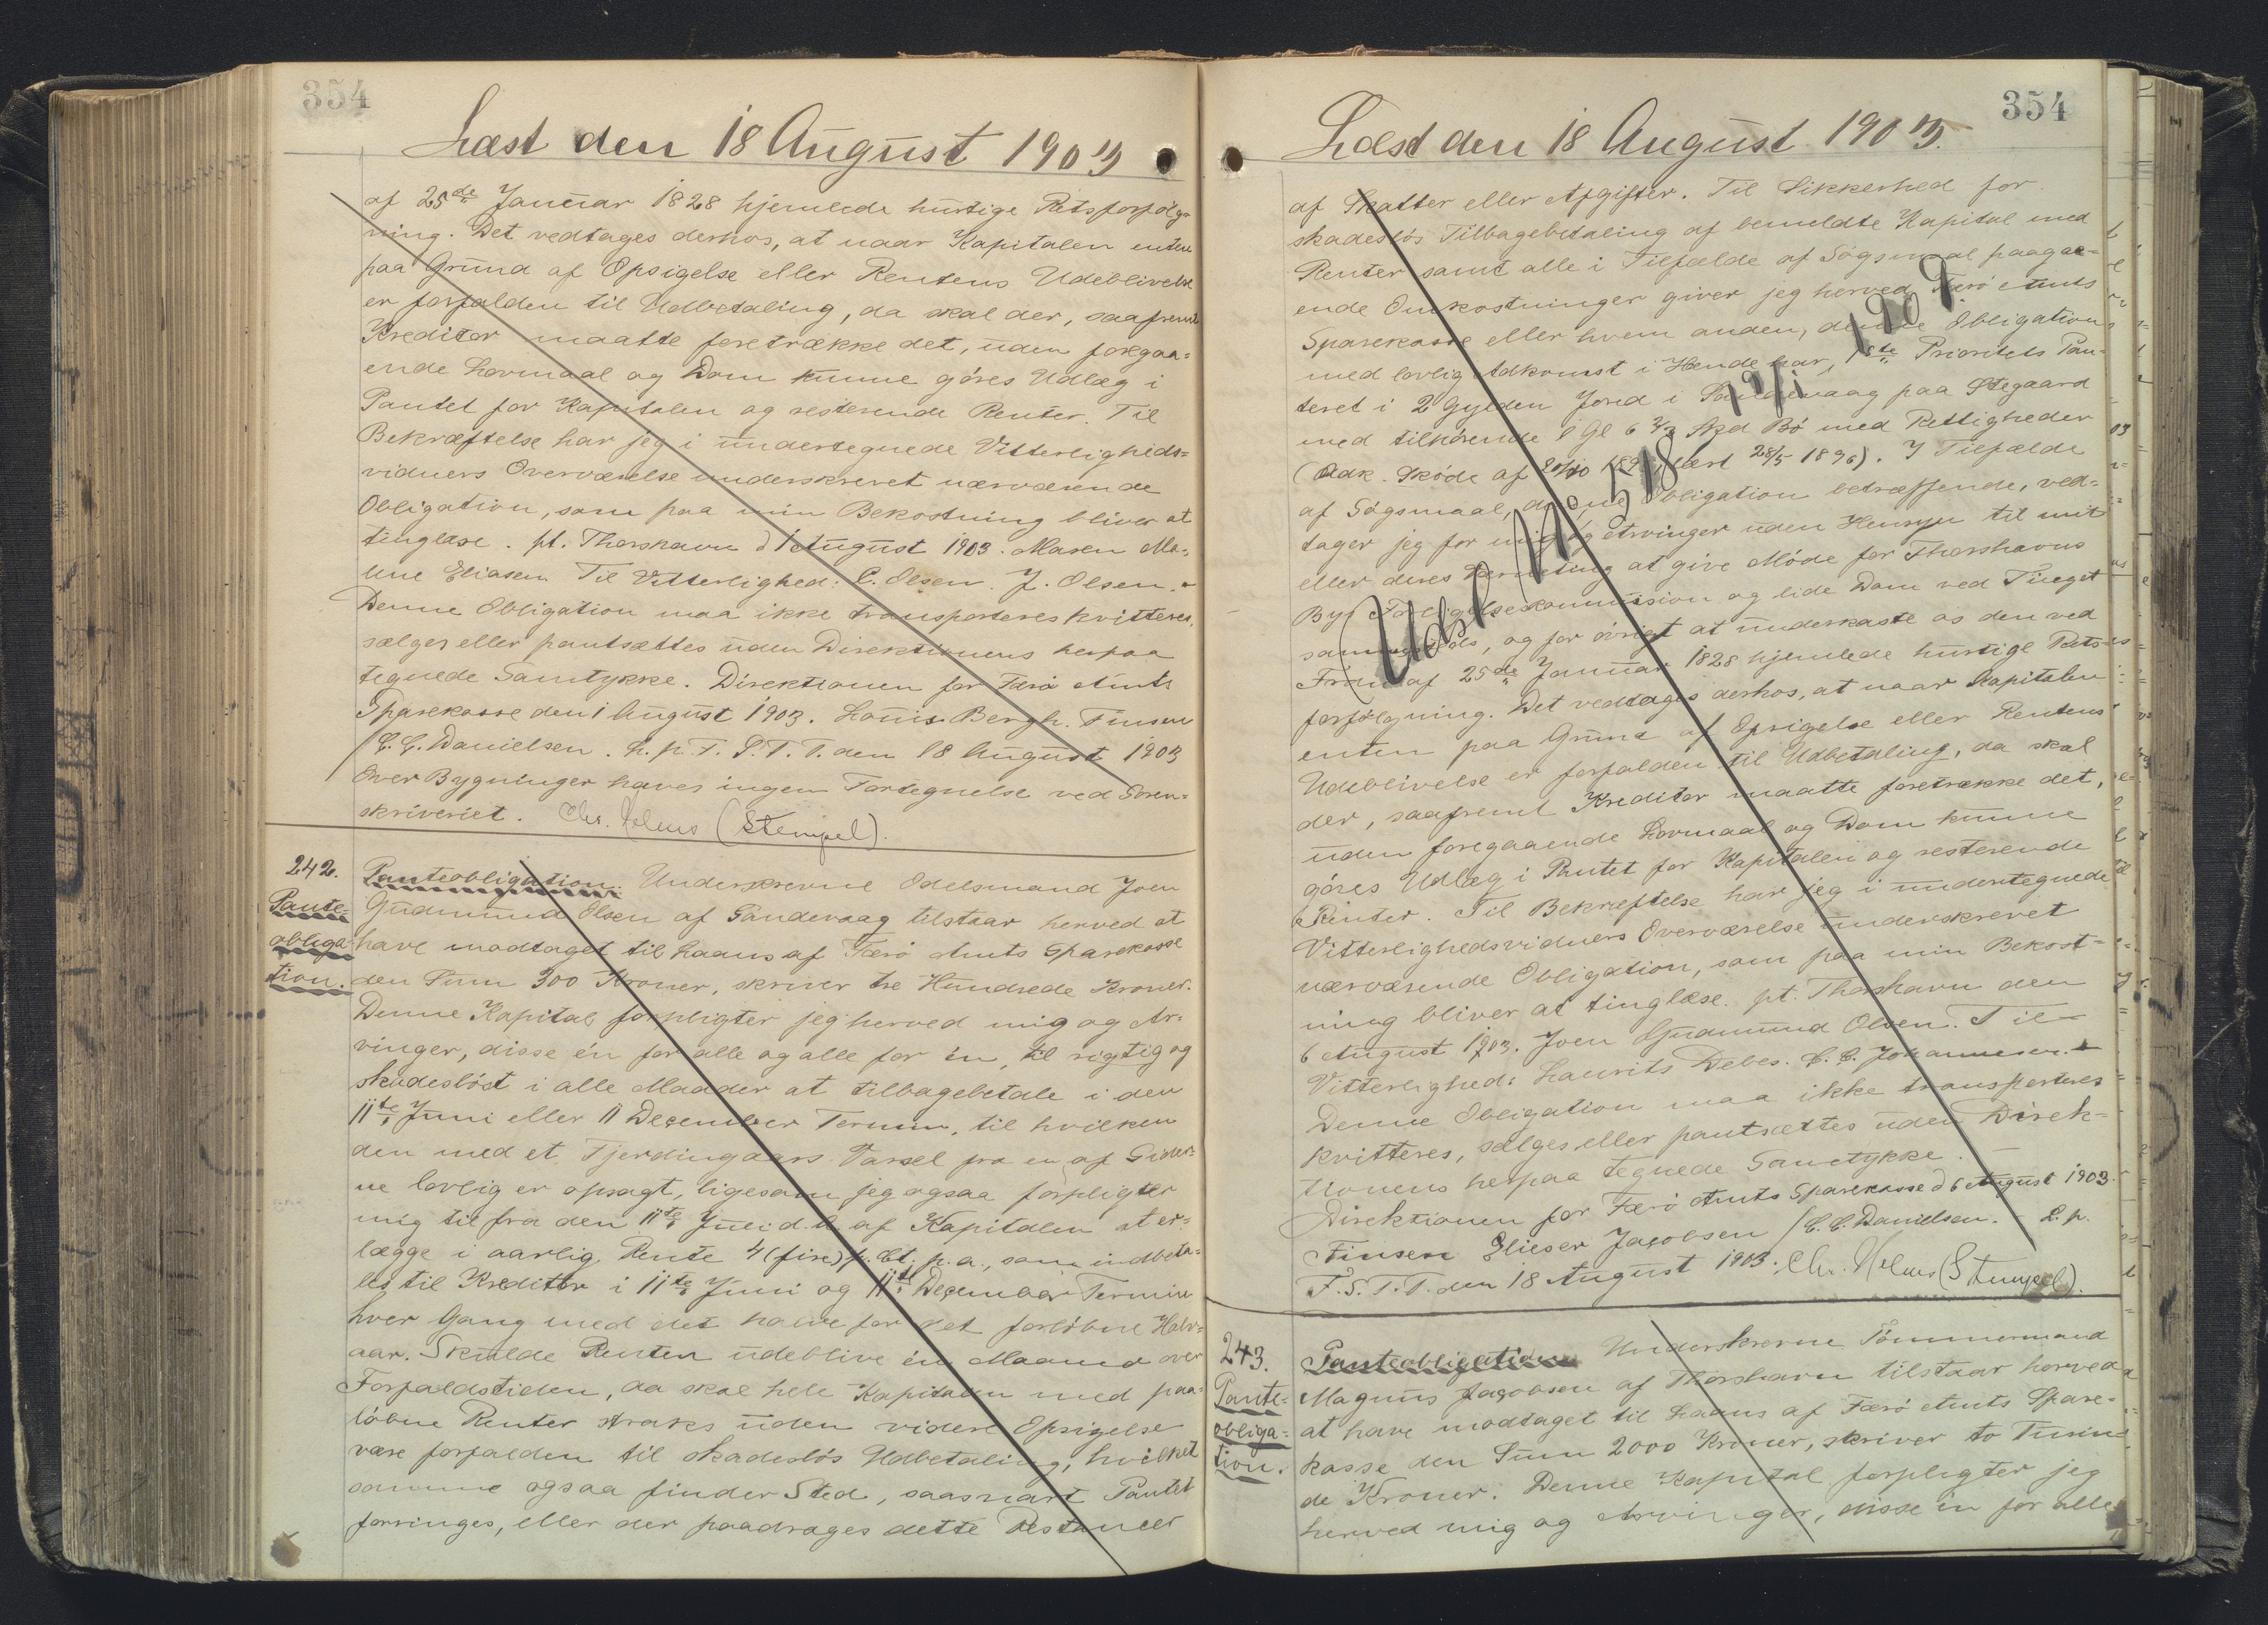 354
Læst den 18 August 1903
af 25de Januar 1828 hjemlede hurtige Retsforfølg-
ning. Det vedtages derhos, at naar Kapitalen enten
paa Grund af Opsigelse eller Rentens Udeblivelse
er forfalden til Udbetaling, da skal der, saafremt
Kreditor maatte foretrække det, uden foregaa-
ende Lovmaal og Dom kunne göres Udlæg i
Pantet for Kapitalen og resterende Renter. Til
Bekræftelse har jeg i undertegnede Vitterligheds-
vidners Overværelse underskrevet nærværende
Obligation, som paa min Bekostning bliver at
tinglæse. pt. Thorshavn d 1 August 1903. Maren Ma-
lene Eliasen Til Vitterlighed: C. Olsen. J. Olsen.
Denne Obligation maa ikke transporteres kvitteres,
sælges eller pantsættes uden Direktionens herpaa
tegnede Samtykke. Direktionen for Færö Amts
Sparekasse den 1 August 1903. Louis Bergh. Finsen
/C. C. Danielsen. L. p. F. S. T. T. den 18 August 1903
Over Bygninger haves ingen Fortegnelse ved Soren-
skriveriet. Chr. (Stempel).
242.
Pante-
obliga-
tion.
Panteobligation. Underskrevne Odelsmand Joen
Gudmund Olsen af Sandevaag tilstaar herved at
have modtaget til Laans af Færö Amts Sparekasse
den Sum 300 Kroner, skriver tre Hundrede Kroner.
Denne Kapital forpligter jeg herved mig og Ar-
vinger, disse én for alle og alle for én, til rigtig og
skadeslöst i alle Maader at tilbagebetale i den
11te Juni eller 11 December Termin, til hvilken
den med et Fjerdingaars Varsel fra en af Sider-
ne lovlig er opsagt, ligesom jeg ogsaa forpligter
mig til fra den 11te Juni d. A. af Kapitalen at er-
lægge i aarlig Rente 4 (fire) p. Ct. p. a., som indbeta-
les til Kreditor i 11te Juni og 11te December Termin
hver Gang med det halve for det forløbne Halv-
aar. Skulde Renten udeblive én Maaned over
Forfaldstiden, da skal hele Kapitalen med paa-
löbne Renter straks uden videre Opsigelse
være forfalden til skadeslös Udbetaling, hvilket
samme ogsaa finder Sted, saasnart Pantet
forringes, eller der paadrages dette Restancer
354
Læst den 18 August 1903.
af Skatter eller Afgifter. Til Sikkerhed for
skadeslös Tilbagebetaling af bemeldte Kapital med
Renter samt alle i Tilfælde af Sögsmaal paagaa-
ende Omkostninger giver jeg herved Færö Amts
Sparekasse eller hvem anden, denne Obligation
med lovlig Adkomst i Hænde har, 1ste Prioritets Pan-
teret i 2 Gylden Jord i Sandevaag paa Stegaard
med tilhörende 1 Gl 6 2/3 Skd Bö med Rettigheder
(Adk. Sköde af læst 28/5 1896). I Tilfælde
af Sögsmaal, denne Obligation betræffende, ved-
tager jeg for mig og Arvinger uden Hensyn til mit
eller deres Værneting at give Möde for Thorshavns
By Forligelseskommission og lide Dom ved Tinget
sammesteds, og for övrigt at underkaste os den ved
Frdn af 25de Januar 1828 hjemlede hurtige Rets-
forfölgning. Det vedtages derhos, at naar Kapitalen
enten paa Grund af Opsigelse eller Rentens
Udeblivelse er forfalden til Udbetaling, da skal
der, saafremt Kreditor maatte foretrække det,
uden foregaaende Lovmaal og Dom kunne
göres Udlæg i Pantet for Kapitalen og resterende
Renter. Til Bekræftelse har jeg i undertegnede
Vitterlighedsvidners Overværelse underskrevet
nærværende Obligation, som paa min Bekost-
ning bliver at tinglæse. pt. Thorshavn den
6 August 1903. Joen Gudmund Olsen. Til
Vitterlighed: Laurits Debes. C. C. Johannesen.
Denne Obligation maa ikke transporteres
kvitteres, sælges eller pantsættes uden Direk-
tionens herpaa tegnede Samtykke.
Direktionen for Færö Amts Sparekasse d 6 August 1903.
Finsen Elieser Jacobsen /C. C. Danielsen. L. p.
F. S. T. T. den 18 August 1903. Chr. (Stempel).
Udsl.
1909
243.
Pante-
obliga-
tion.
Panteobligation Underskrevne Tömmermand
Magnus Jacobsen af Thorshavn tilstaar herved
at have modtaget til Laans af Færö Amts Spare-
kasse den Sum 2000 Kroner, skriver to Tusin-
de Kroner. Denne Kapital forpligter jeg
herved mig og Arvinger, disse én for alle